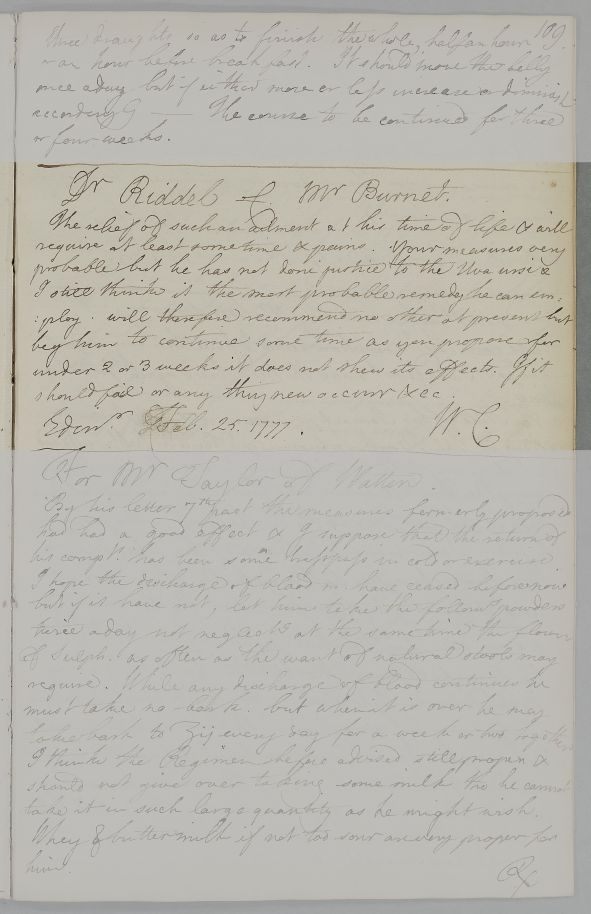 109.
three draughts so as to finish the whole, half an hour
or an hour before breakfast. It should move the belly
once a day but if either more or less increase or diminish
accordingly — The course to be continued for three
or four weeks.
Dr Riddel f. Mr Burnet.
The relief of such an ailment at his time of life &c will
require at least some time & pains. Your measures very
probable but he has not done justice to the Uva ursi &
I still think it the most probable remedy he can em:
:ploy. will therefore recommend no other at present but
beg him to continue some time as you propose for
under 2 or 3 weeks it does not shew its effects. If it
should fail or any thing new occurr &c &c
Edinr. Feb. 25. 1777. W. C.
For Mr Taylor of Watten.
By his letter 7th past the measures formerly proposed
had had a good effect & I suppose that the return of
his complt. has been some trespass in cold or exercise
I hope the discharge of blood m. have ceased before now
but if it have not, let him take the followg powders
twice a day not neglectg at the same time the flower
of Sulph. as often as the want of natural stools may
require. While any discharge of blood continues he
must take no bark. but when it is over he may
take bark to ʒij every day for a week or two together
I think the Regimen before advised still proper &
should not give over taking some milk tho he cannot
take it in such large quantity as he might wish.
Whey & butter milk if not too sour are very proper for
him.
Rx